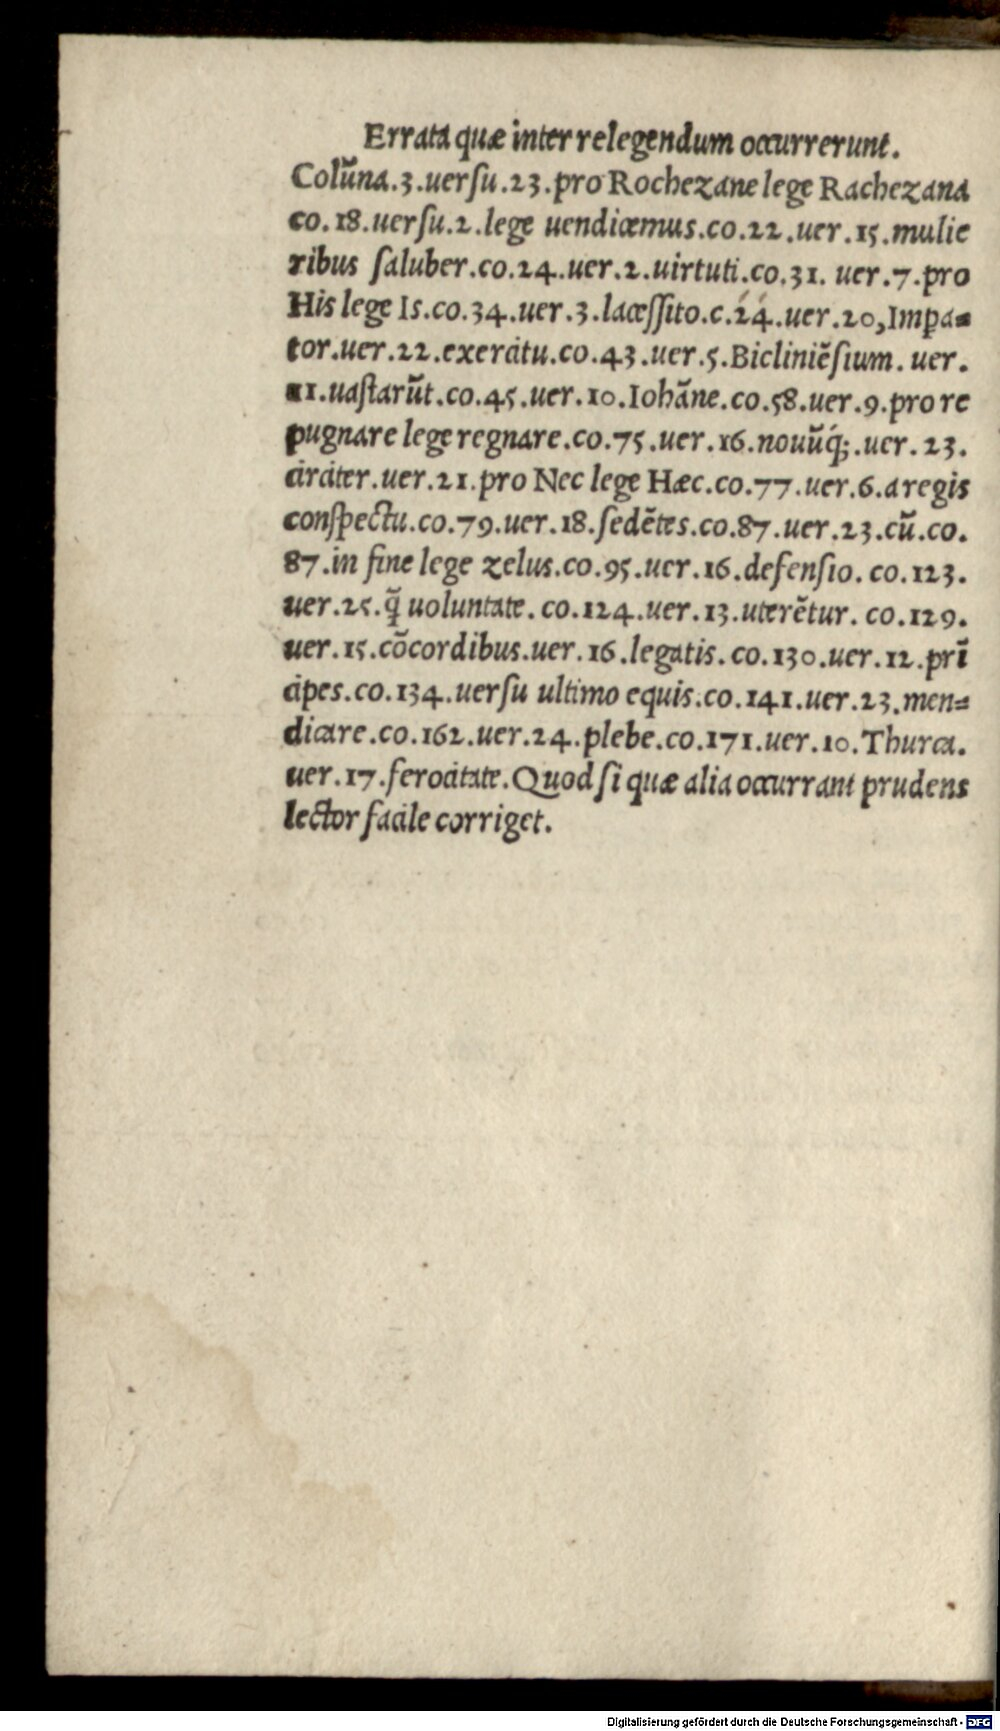 Errata quæ inter relegendum occurrerunt.
Colũna.3.uerſu.23.pro Rochezane lege Rachezana
co.18.uerſu.2.lege uendicemus.co.22.uer.15.mulie
ribus ſaluber.co.24.uer.2.uirtuti.co.31. uer.7.pro
His lege Is.co.34.uer.3.laceſſito.c.24.uer.20,Imꝑa-
tor.uer.22.exercitu.co.43.uer.5.Bicliniẽſium. uer.
21.uaſtarũt.co.45.uer.10.Iohãne.co.58.uer.9.pro re
pugnare lege regnare.co.75.uer.16.nouũq́;.uer.23.
circiter.uer.21.pro Nec lege Hæc.co.77.uer.6.a regis
conſpectu.co.79.uer.18.ſedẽtes.co.87.uer.23.cũ.co.
87.in fine lege zelus.co.95.uer.16.defenſio. co.123.
uer.25.q̃ uoluntate. co.124.uer.13.uterẽtur. co.129.
uer.15.cõcordibus.uer.16.legatis. co.130.uer.12.prĩ
cipes.co.134.uerſu ultimo equis.co.141.uer.23.men=
dicare.co.162.uer.24.plebe.co.171.uer.10.Thurca.
uer.17.ferocitate.Quod ſi quæ alia occurrant prudens
lector facile corriget.
Digitalisierung gefördert durch die Deutsche Forschungsgemeinschaft - DFG